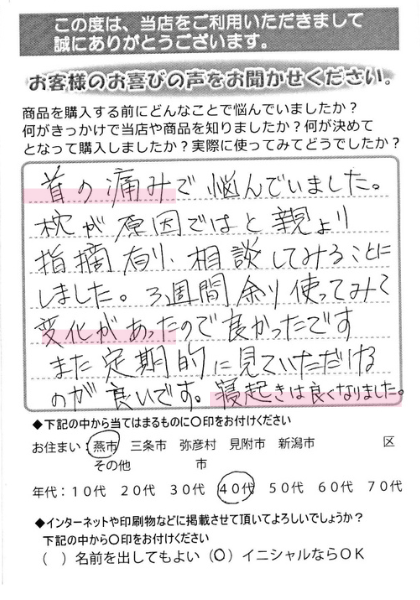 この度は、当店をご利用いただきまして
誠にありがとうございます。
お客様のお喜びの声をお聞かせください。
商品を購入する前にどんなことで悩んでいましたか？
何がきっかけで当店や商品を知りましたか？何が決めて
となって購入しましたか？実際に使ってみてどうでしたか？
首の痛みで悩んでいました。
枕が原因ではと親より
指摘有り、相談してみることに
しました。3週間余り使ってみて
変化があったので良かったです
また定期的に見ていただける
のが良いです。寝起きは良くなりました。
◆下記の中から当てはまるものに〇印をお付けください
お住まい：燕市 三条市 弥彦村 見附市 新潟市 区
その他 市
年代：10代 20代 30代 40代 50代 60代 70代
◆インターネットや印刷物などに掲載させて頂いてよろしいでしょうか？
下記の中から〇印をお付けください
（ ）名前を出してもよい（〇）イニシャルならOK